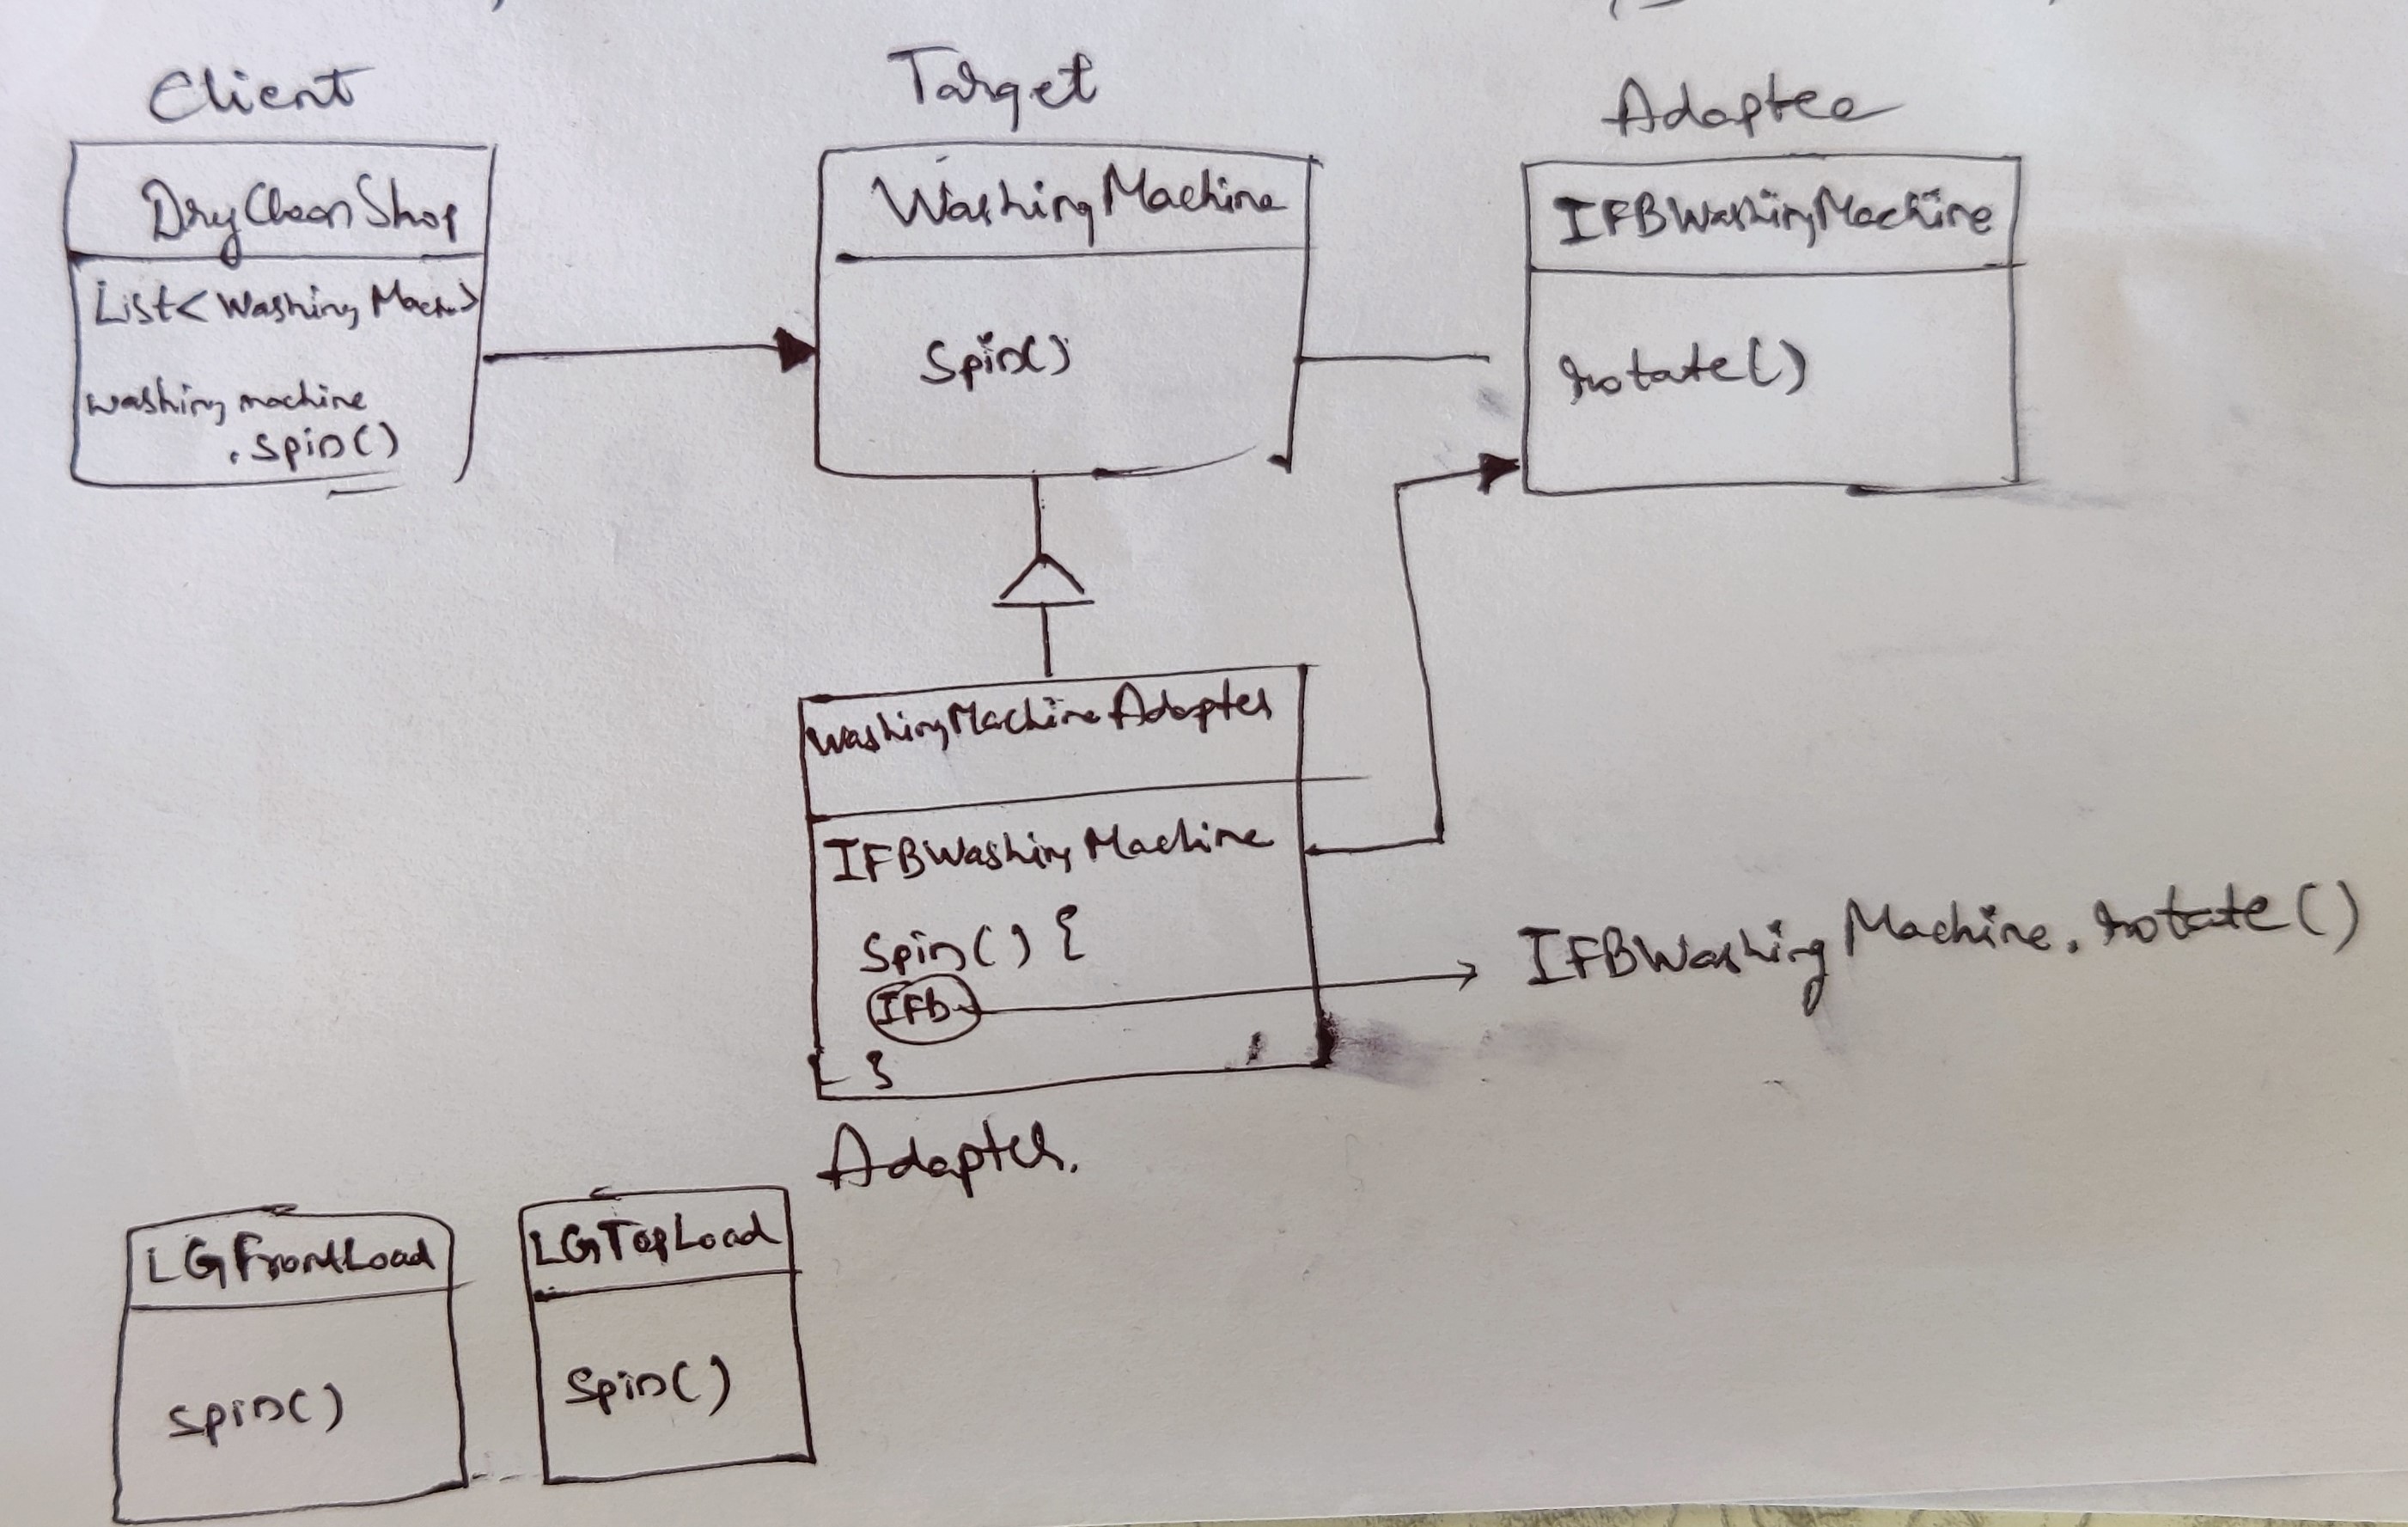 Client
DryCleanShop
List<Washing Machn>
washing machine
.spin()
Target
WashingMachine
Spin()
Adaptee
IFBWashingMachine
rotate()
WashingMachineAdapter
IFBWashingMachine
Spin() {
IFb
}
IFBWashingMachine.rotate()
Adapter.
LGFrontLoad
spin()
LGTopLoad
Spin()